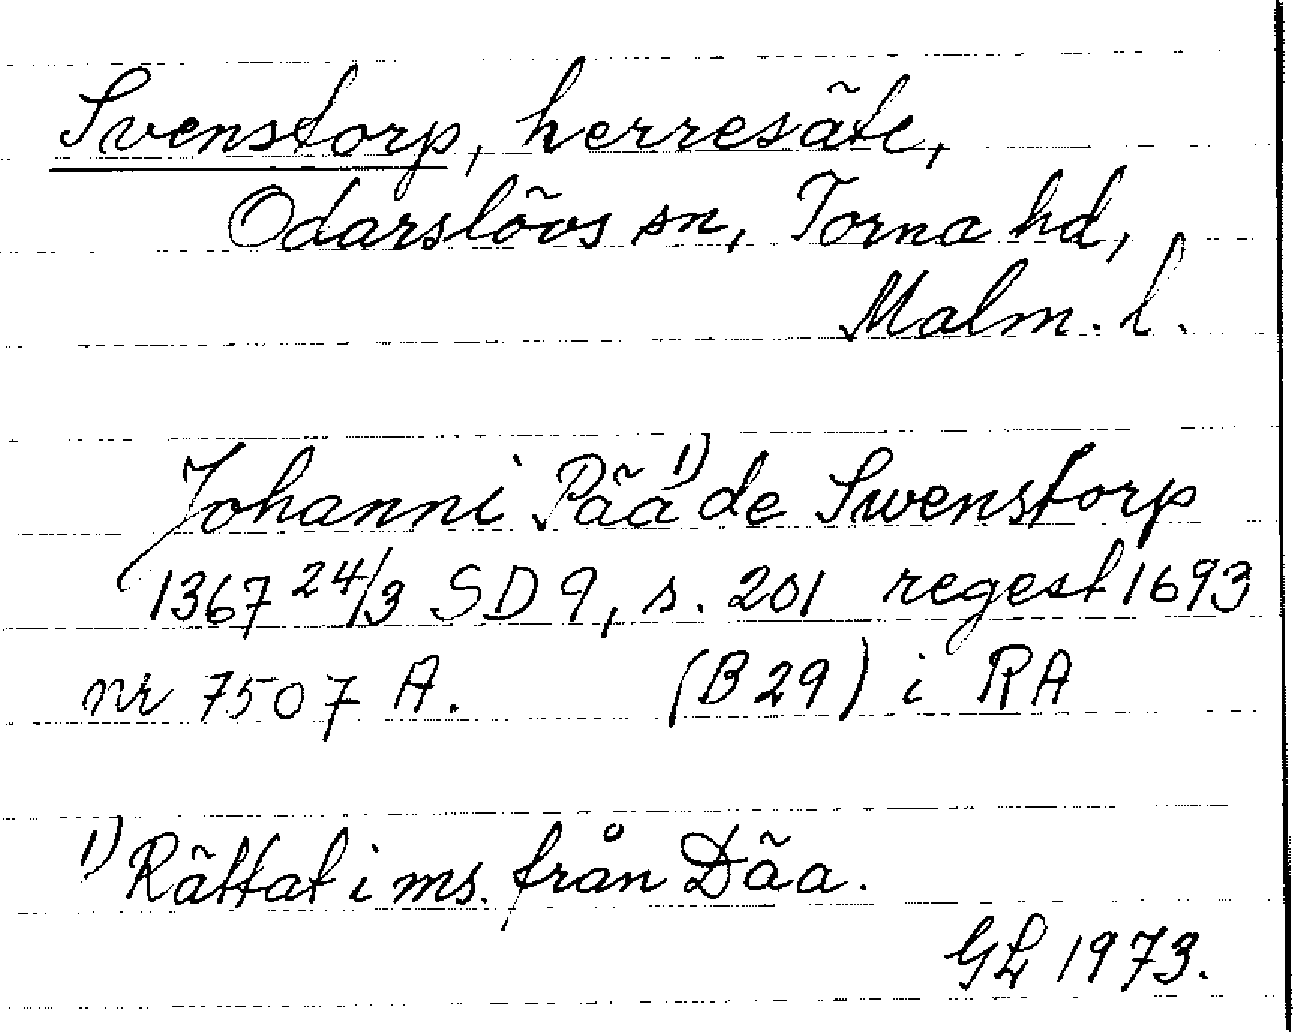 Svenstorp, herresäte,
Odarslövs sn, Torna hd,
Malm. l.
Johanni Päa 1) de Swenstorp
1367 24/3 SD 9, s. 201 regest 1693
nr 7507 A. (B 29) i RA
1) Rättat i ms. från Däa.
GL 1973.